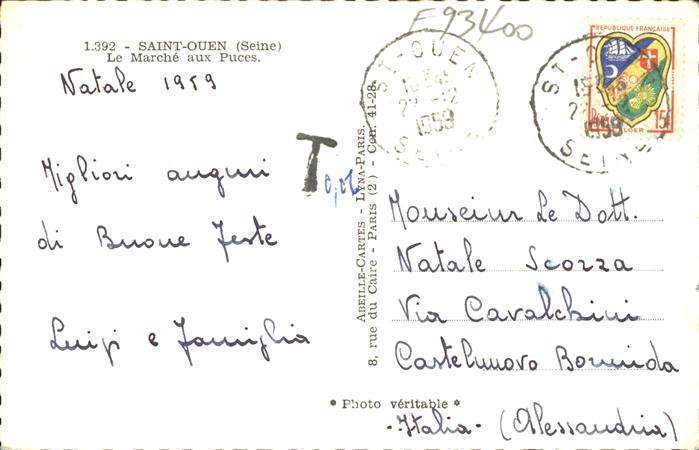 F93400
1.392 - SAINT-OUEN (Seine)
Le Marché aux Puces.
Natale 1959
Migliori auguri
di Buone Feste
Luigi e Famiglia
T
0,02
ABEILLE-CARTES - LYNA-PARIS,
8, rue du Caire - PARIS (2) - Con. 41-28.
* Photo véritable *
ST-OUEN
1959
SEINE
REPUBLIQUE FRANÇAISE
15F
ALGER
ST-OUEN
1959
SEINE
Monseiur Le Dott.
Natale Scozza
Via Cavalchini
Castelnuovo Bormida
-Italia- (Alessandria)